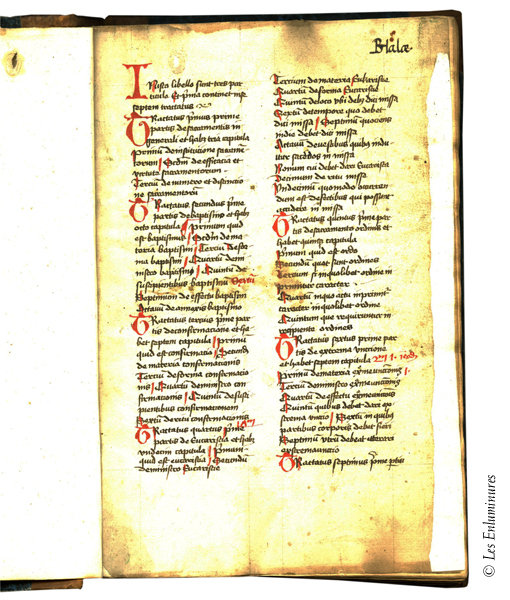 In isto libello sunt tres par
ticule Et prima continet in se
septem tractatus
Tractatus primus prime
partis de sacramentis in
generali et habet tria capitula
Primum de institucione sacrame
torum Secundum de efficacia et
virtute sacramentorum
Tercium de numero et distinctio
ne sacramentorum
Tractatus secundus prime
partis de baptismo et habet
octo capitula Primum quid
est baptismus Secundum de ma
teria baptismi Tercium de for
ma baptismi Quartum de mi
nistro baptismi Quintum de
suscipientibus baptismum Sextum
Septimum de effectu baptismi
Octavum de annexis baptismo
Tractatus tercius prime par
tis de confirmacione et ha
bet septem capitula Primum
quid est confirmacio Secundum
de materia confirmacionis
Tercium de forma confirmacio
nis Quartum de ministro con
firmacionis Quintum de susci
pientibus confirmacionem
Tractatus quartus prime
partis de Eucaristia et habet
undecim capitula Primum
quid est eucaristia Secundum
de ministro Eucaristie
Tercium de materia Eukaristie
Quartum de forma Eucaristie
Quintum de loco ubi debet dici missa
Sextum de tempore quo debet
dici missa Septimum quociens
in die debet dici missa
Octavum de vestibus quibus indu
itur sacerdos in missa
Nonum cui debet dari Eucaristia
Decimum de ritu misse
Undecimum quomodo occurren
dum est defectibus qui possunt
accidere in missa
Tractatus quintus prime par
tis de sacramento ordinis et
habet quinque capitula
Primum quid est ordo
Secundum quot sunt ordines
Tercium si in quolibet ordine im
primitur caracter
Quartum in quo actu imprimitur
caracter in quolibet ordine
Quintum que requiruntur in
recipiente ordines
Tractatus sextus prime par
tis de extrema unccione
et habet septem capitula
Primum de materia extreme unccionis
Tercium de ministro extreme unccionis
Quartum de effectu extreme unccionis
Quintum quibus debet dari ex
trema unctio Sextum in quibus
partibus corporis debet fieri
Septimum utrum debeat iterari
extrema unctio
Tractatus septimus prime partis
© Les Enluminures